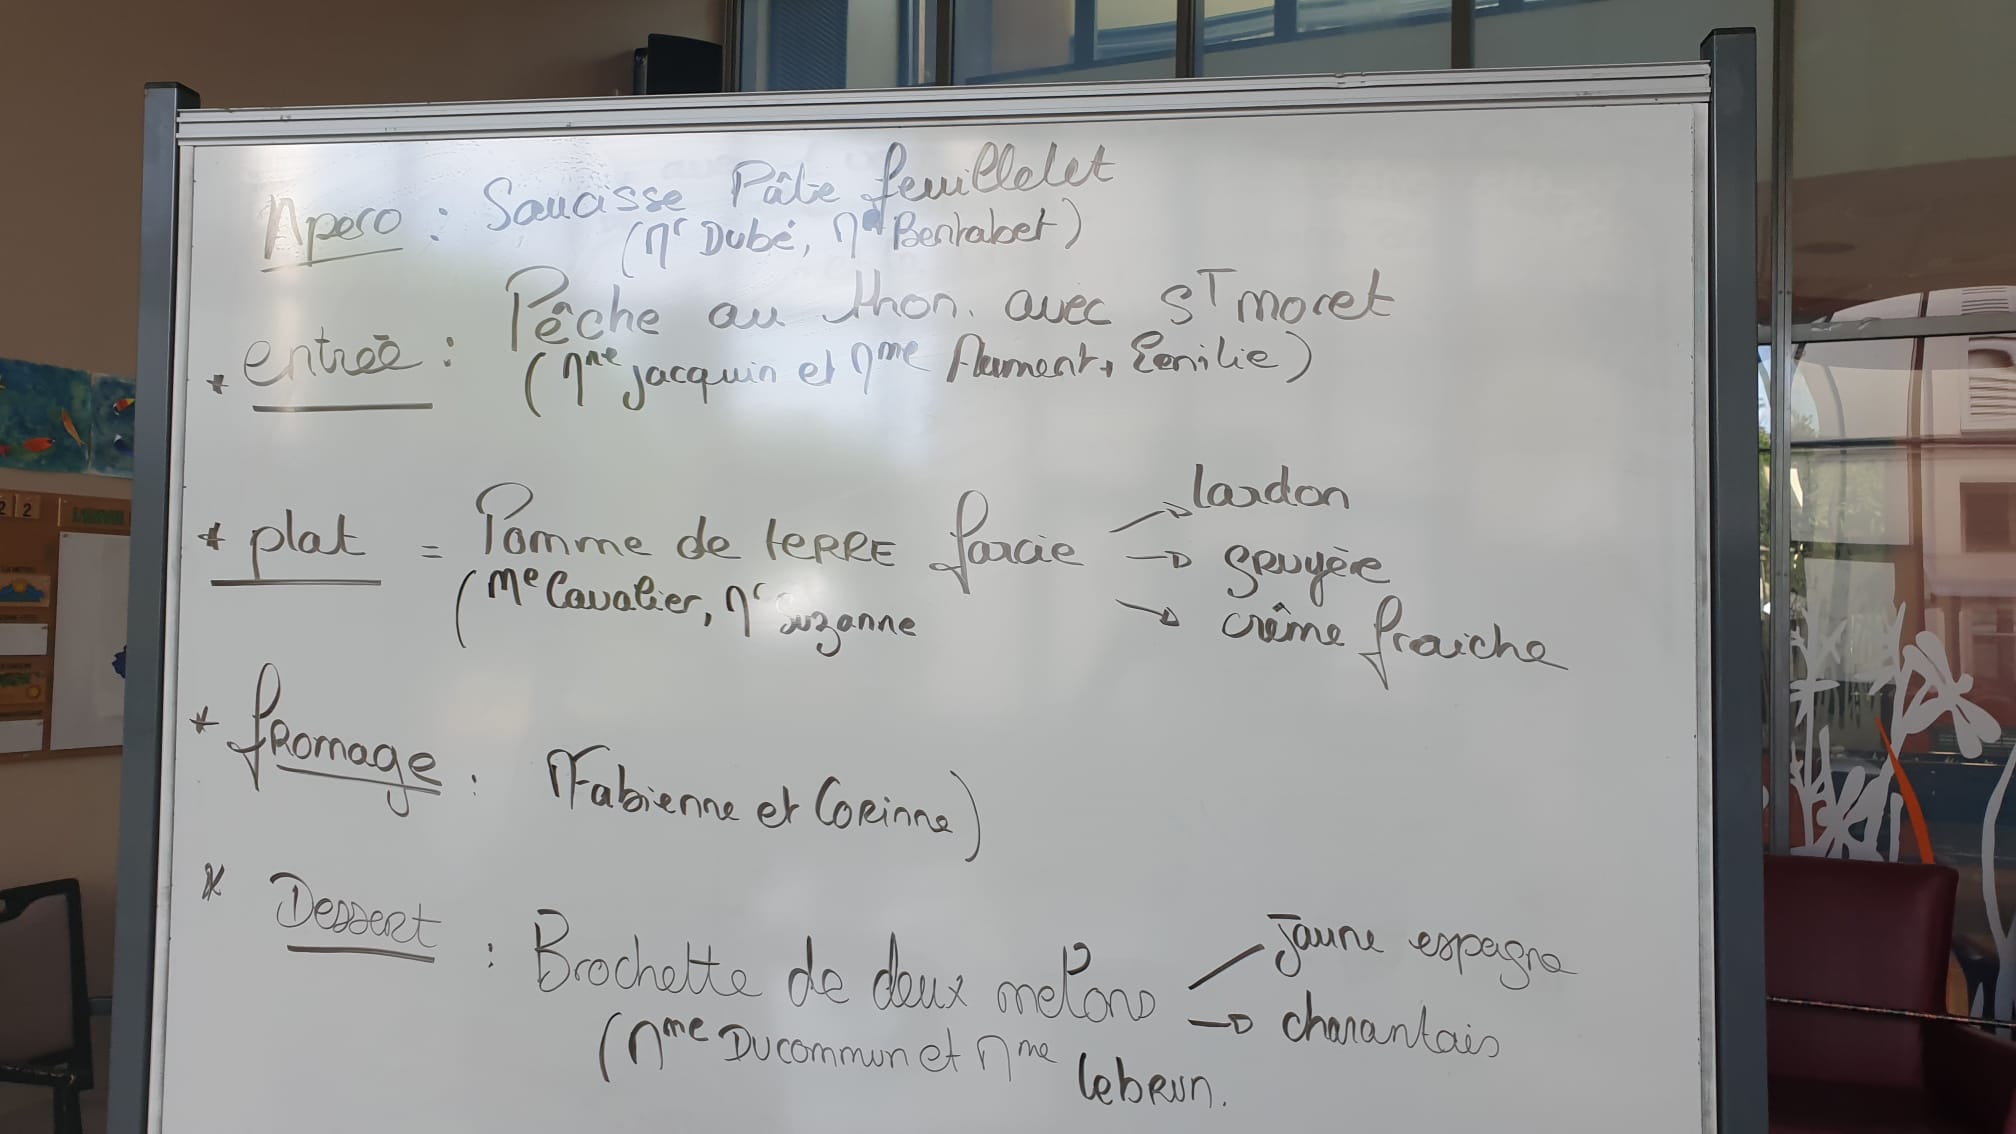 Apero : Saucisse Pâte feuilletet
(Mr Dubé, Md Bentabet)
* entrée : Pêche au thon. avec ST moret
(Mme jacquin et Mme Flament, Emilie)
* plat = Pomme de teRRE farcie → lardon
→ gruyère
→ crême fraiche
(Me Cavalier, Mr Suzanne
* fromage : Fabienne et Corinne)
* Dessert : Brochette de deux melons — jaune espagne
→ charantais
(Mme Ducommun et Mme lebrun.
22